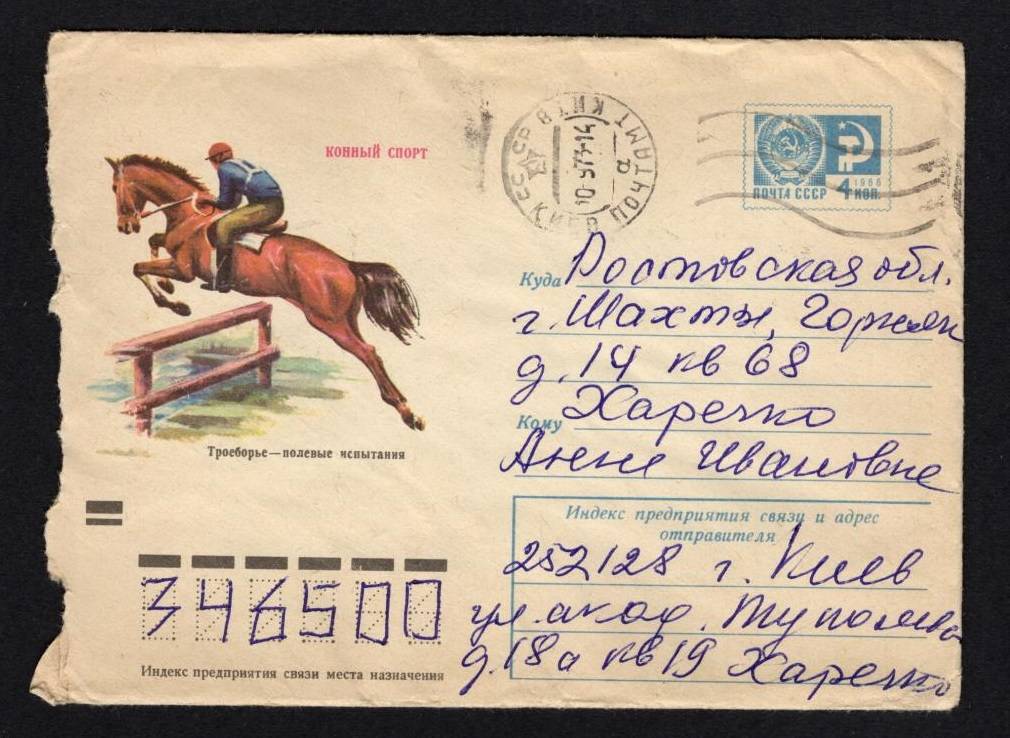 КОННЫЙ СПОРТ
Троеборье—полевые испытания
СССР КИЕВ ПОЧТАМТ КИЇВ
10-9 73-14
а
1966
ПОЧТА СССР 4 КОП.
Куда Ростовская обл.
г. Шахты, Горняк
д. 14 кв 68
Кому Харечко
Анне Ивановне
Индекс предприятия связи и адрес
отправителя
252128 г. Киев
ул. акад. Туполева
д. 18а кв 19 Харечко
346500
Индекс предприятия связи места назначения